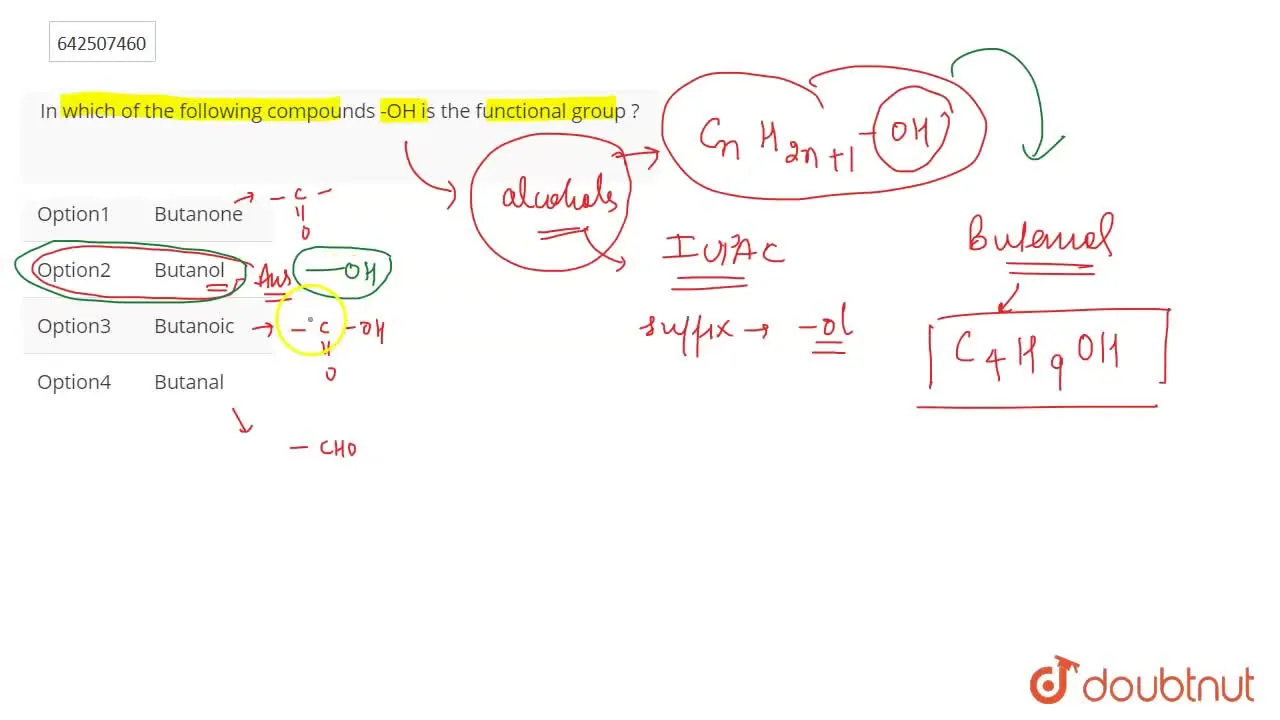 642507460
In which of the following compounds -OH is the functional group ?
Cn H2n+1 - OH
alcohols
Option1 Butanone → - C -
||
O
IUPAC
Butanol
Option2 Butanol Ans —OH
suffix → -ol
C4H9OH
Option3 Butanoic → - C - OH
||
O
Option4 Butanal
- CHO
doubtnut